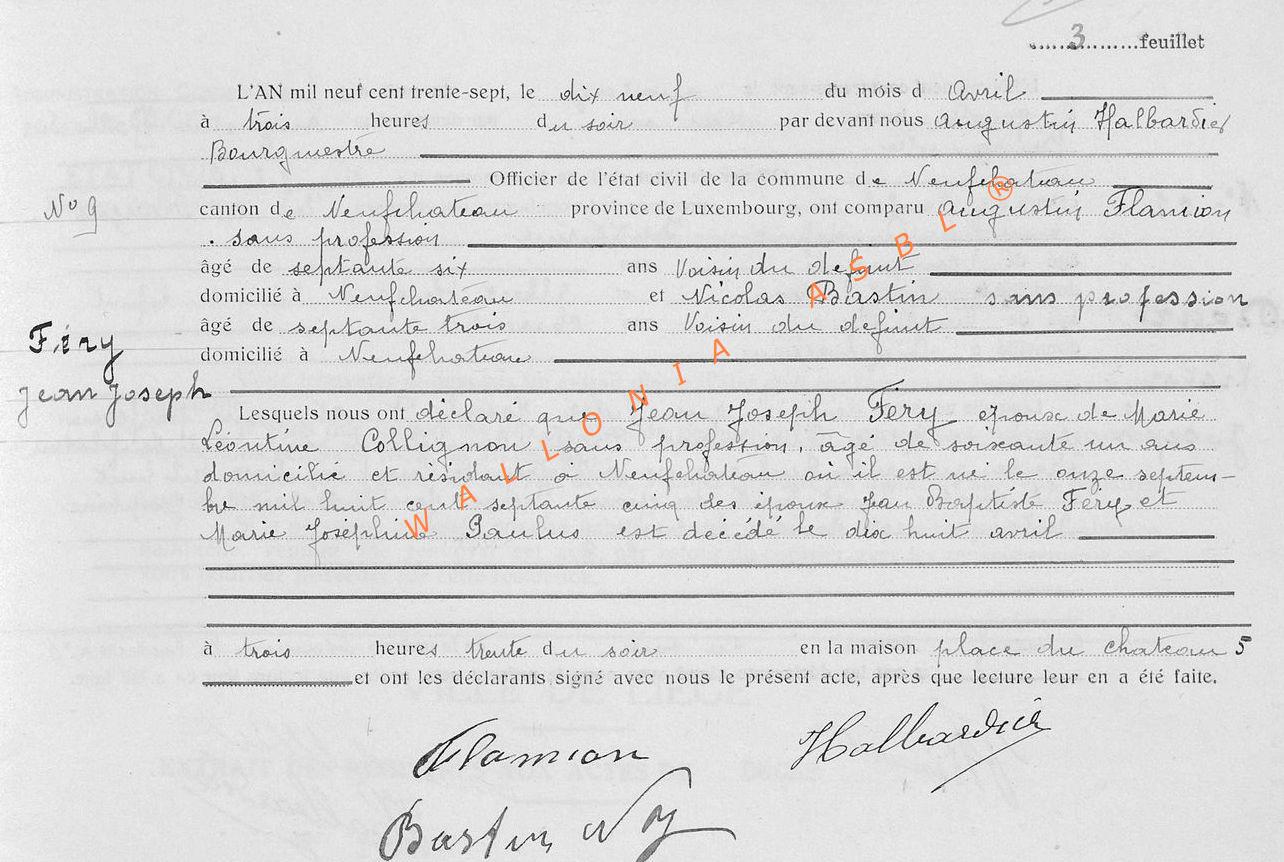 3 feuillet
L'AN mil neuf cent trente-sept, le dix neuf du mois d Avril
à trois heures du soir par devant nous Augustin Halbardier
Bourgmestre
Officier de l'état civil de la commune de Neufchateau
No 9 canton de Neufchateau province de Luxembourg, ont comparu Augustin Flamion
sans profession
âgé de septante six ans Voisin du defunt
domicilié à Neufchateau et Nicolas Bastin sans profession
âgé de septante trois ans Voisin du defunt
domicilié à Neufchateau
Féry
Jean Joseph
Lesquels nous ont déclaré que Jean Joseph Fery époux de Marie
Léontine Collignon sans profession, âgé de soixante un ans
domicilié et résidant à Neufchateau où il est né le onze septem-
bre mil huit cent septante cinq des époux Jean Baptiste Féry et
Marie Joséphine Paulus est décédé le dix huit avril
à trois heures trente du soir en la maison place du chateau 5
et ont les déclarants signé avec nous le présent acte, après que lecture leur en a été faite.
Flamion Halbardier
Bastin
WALLONIA ASBL ®